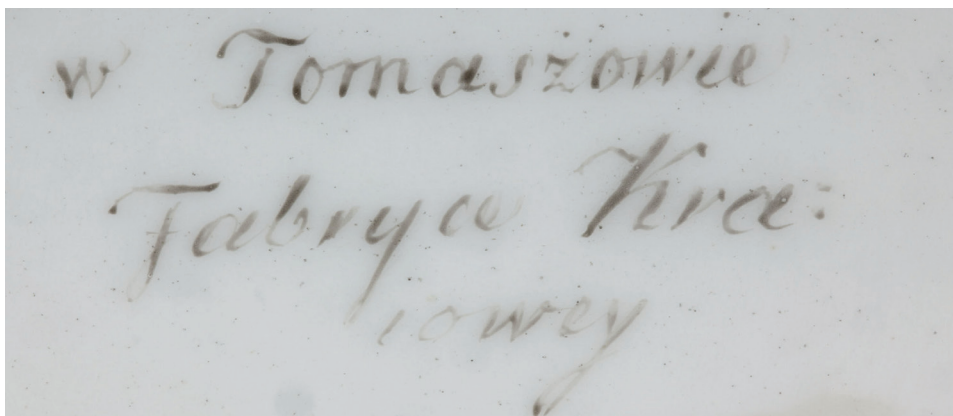 w Tomaszowie
Fabryce Kra:
iowey